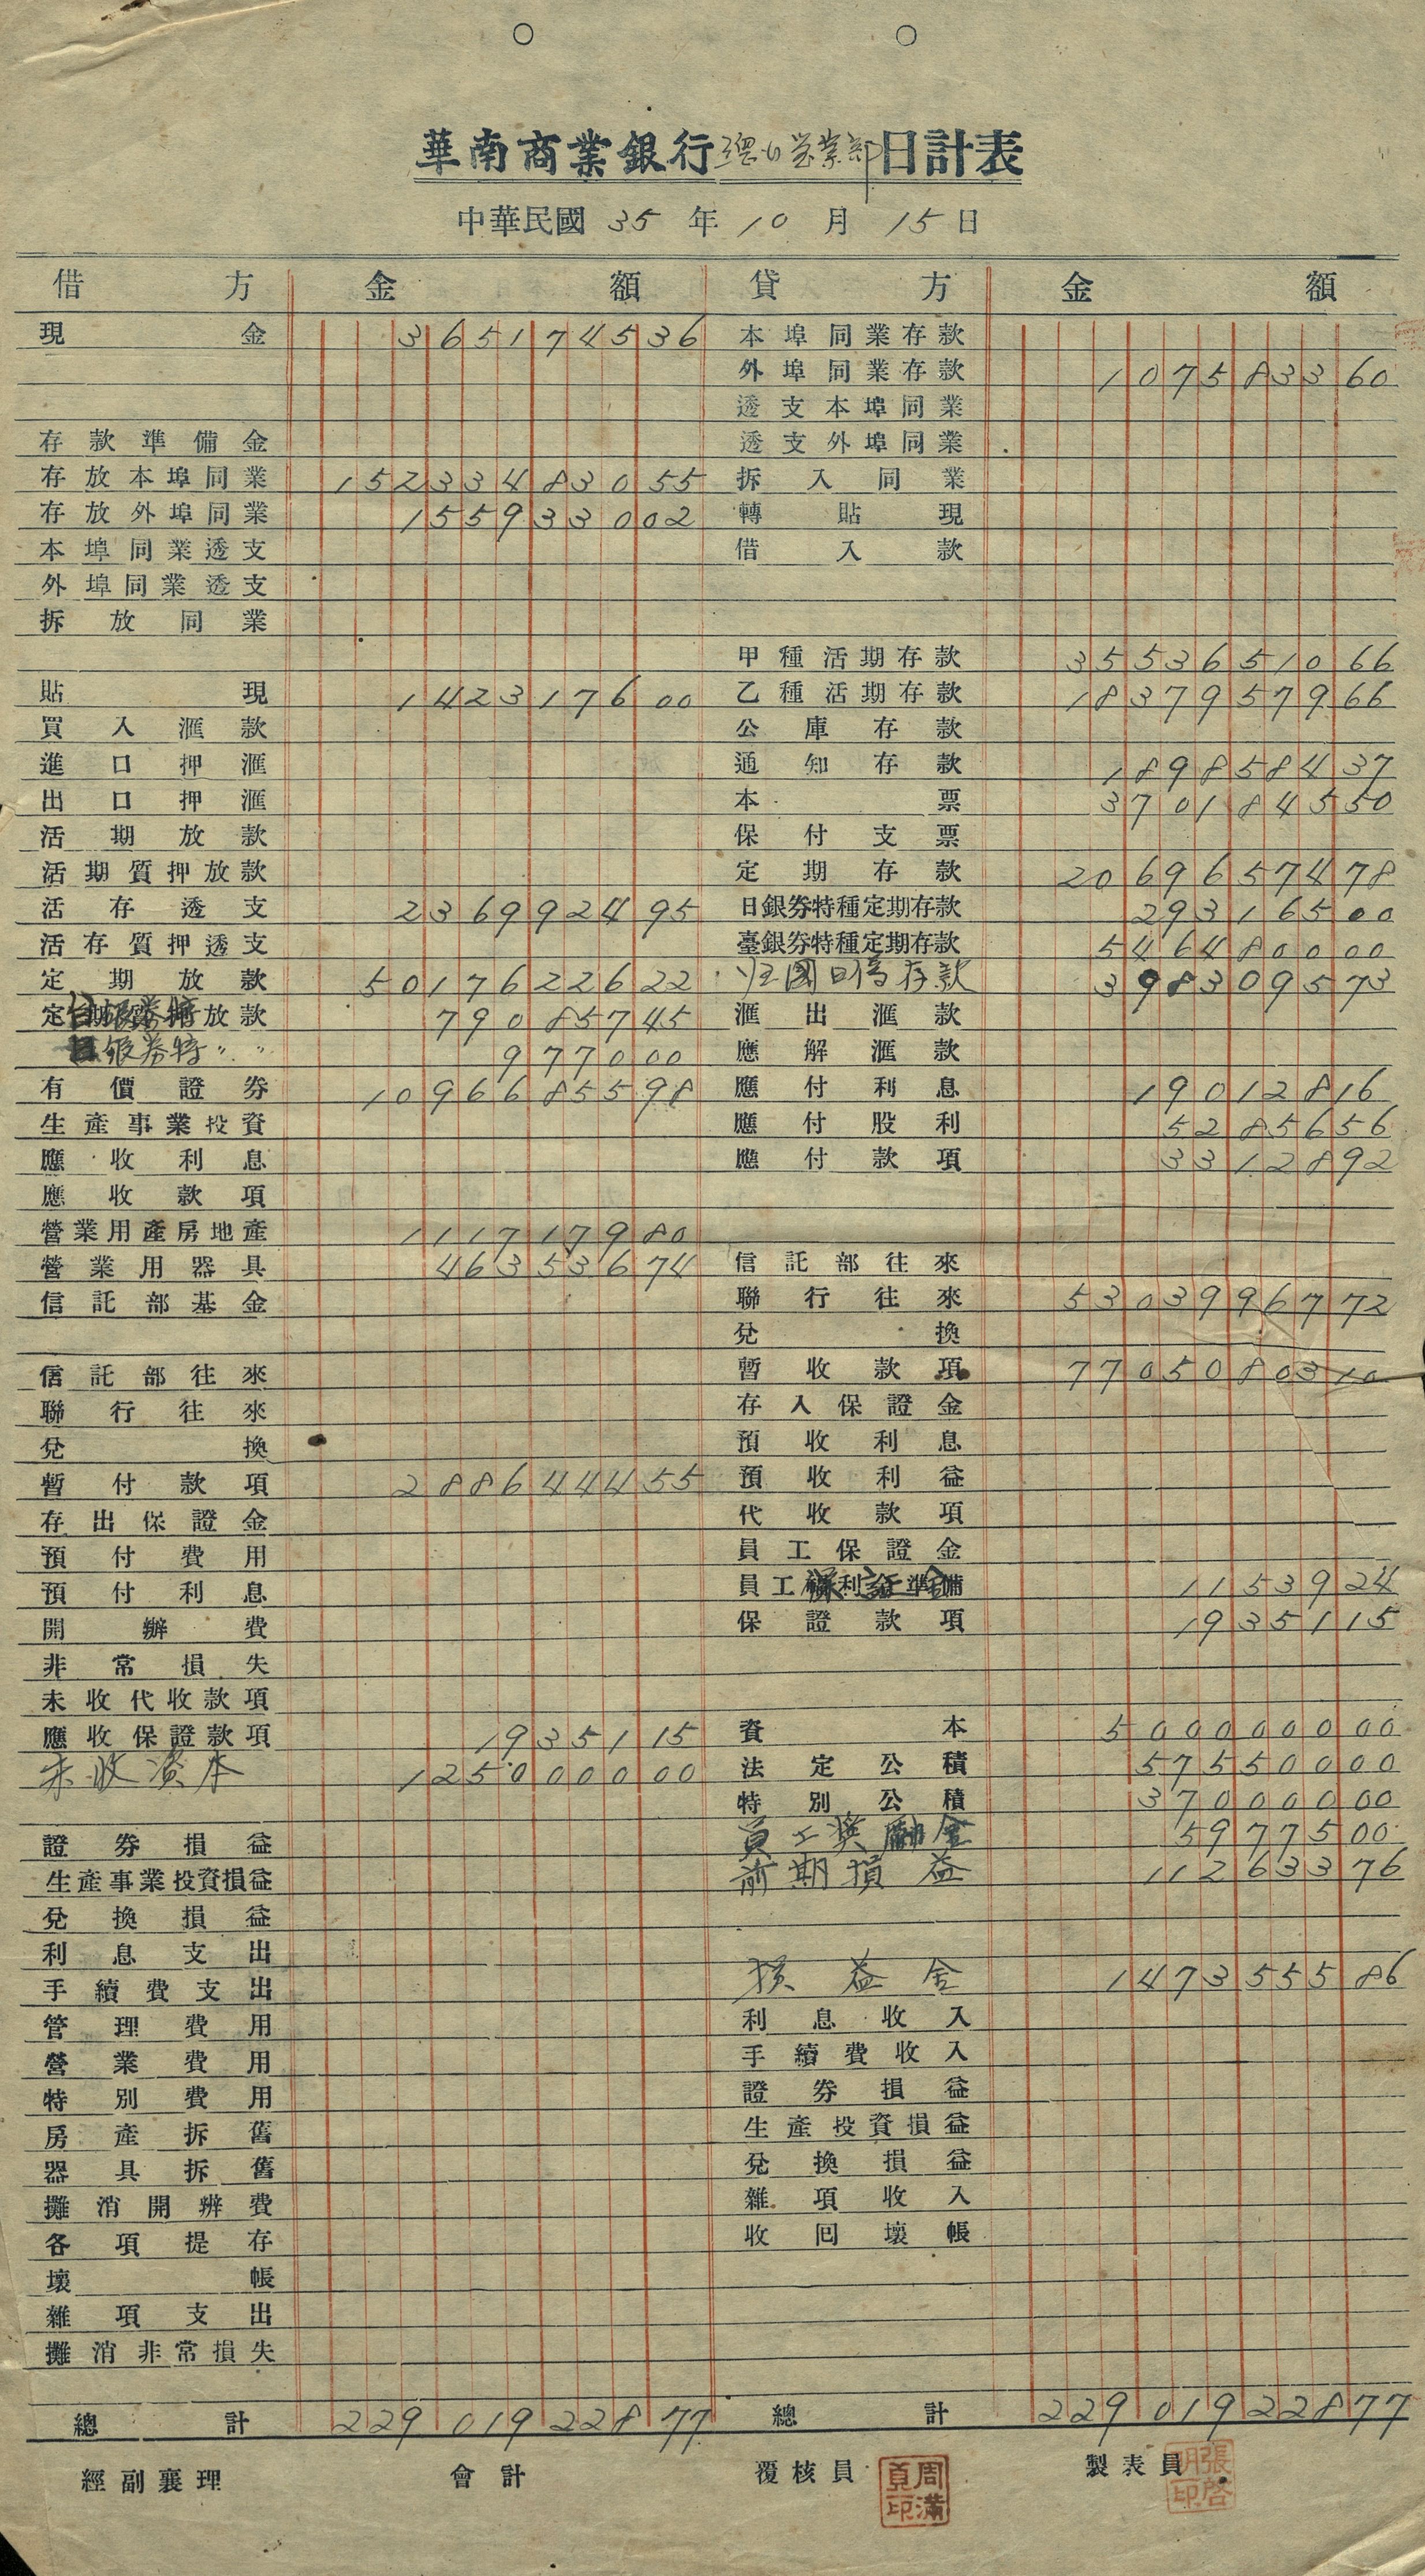 華南商業銀行總行營業部日計表
中華民國 35 年 10 月 15 日
借方 金額 貸方 金額
現金 3651745 36 本埠同業存款
外埠同業存款 1075833 60
透支本埠同業
存款準備金 透支外埠同業
存放本埠同業 1523348305 5 拆入同業
存放外埠同業 15593300 2 轉貼現
本埠同業透支 借入款
外埠同業透支
拆放同業
甲種活期存款 35536510 66
貼現 1423176 00 乙種活期存款 18379579 66
買入滙款 公庫存款
進口押滙 通知存款 1898584 37
出口押滙 本票 3701845 50
活期放款 保付支票
活期質押放款 定期存款 20696574 78
活存透支 23699249 5 日銀券特種定期存款 293165 00
活存質押透支 臺銀券特種定期存款 5464800 00
定期放款 50176226 22 歸國日僑存款 3983095 73
台銀券特放款 790857 45 滙出滙款
日銀券特〃〃 9770 00 應解滙款
有價證券 10966855 98 應付利息 190128 16
生產事業投資 應付股利 52856 56
應收利息 應付款項 33128 92
應收款項
營業用產房地產 1117179 80
營業用器具 463536 74 信託部往來
信託部基金 聯行往來 53039967 72
兌換
信託部往來 暫收款項 77050803 10
聯行往來 存入保證金
兌換 預收利息
暫付款項 2886444 55 預收利益
存出保證金 代收款項
預付費用 員工保證金
預付利息 員工保証金 11539 24
開辦費 保證款項 19351 15
非常損失
未收代收款項
應收保證款項 19351 15 資本 5000000 00
未收資本 1250000 00 法定公積 575500 00
特別公積 370000 00
證券損益 員工獎勵金 59775 00
生產事業投資損益 前期損益 112633 76
兌換損益
利息支出 損益金 1473555 86
手續費支出
管理費用 利息收入
營業費用 手續費收入
特別費用 證券損益
房產拆舊 生產投資損益
器具拆舊 兌換損益
攤消開辦費 雜項收入
各項提存 收回壞帳
壞帳
雜項支出
攤消非常損失
總計 229019228 77 總計 229019228 77
經副襄理 會計 覆核員 製表員